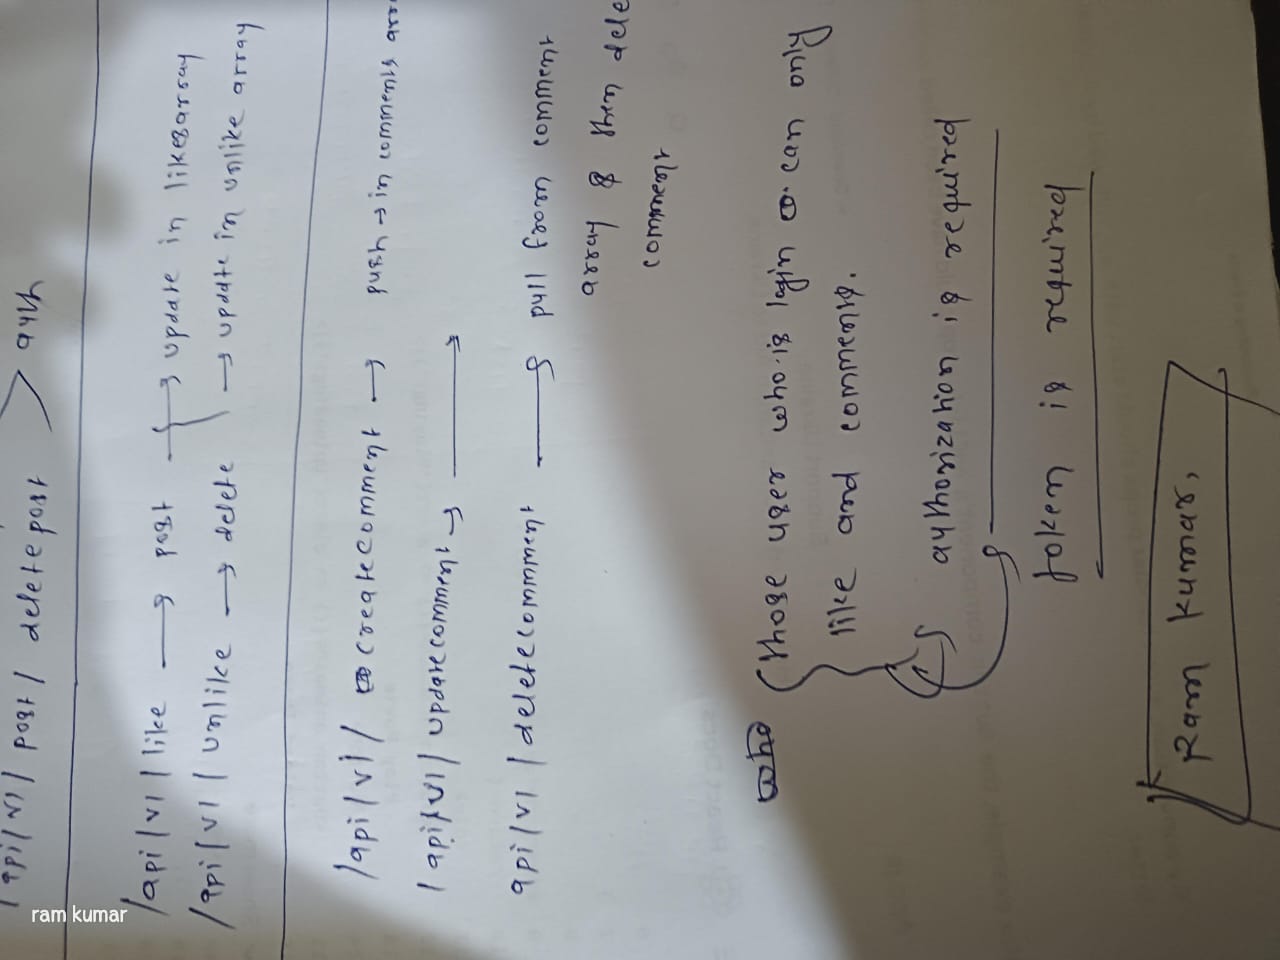 /api/v1/ post / deletepost > auth
/api/v1/like → post → update in likesarray
/api/v1/unlike → delete → update in unlike array
/api/v1/ createcomment → push → in comments
/api/v1/updatecomment →
api/v1/deletecommment → pull from comment
array & then
comment
who
those user who is login can only
like and comments.
authorization is required
token is required
Ram kumar,
ram kumar